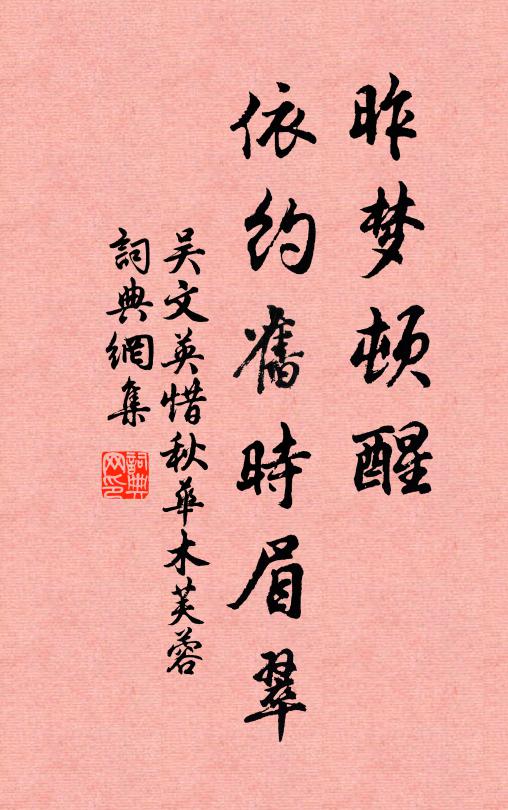 昨梦顿醒
依约舊時眉翠
吴文英惜秋華木芙蓉
詞典網集
詞典网印